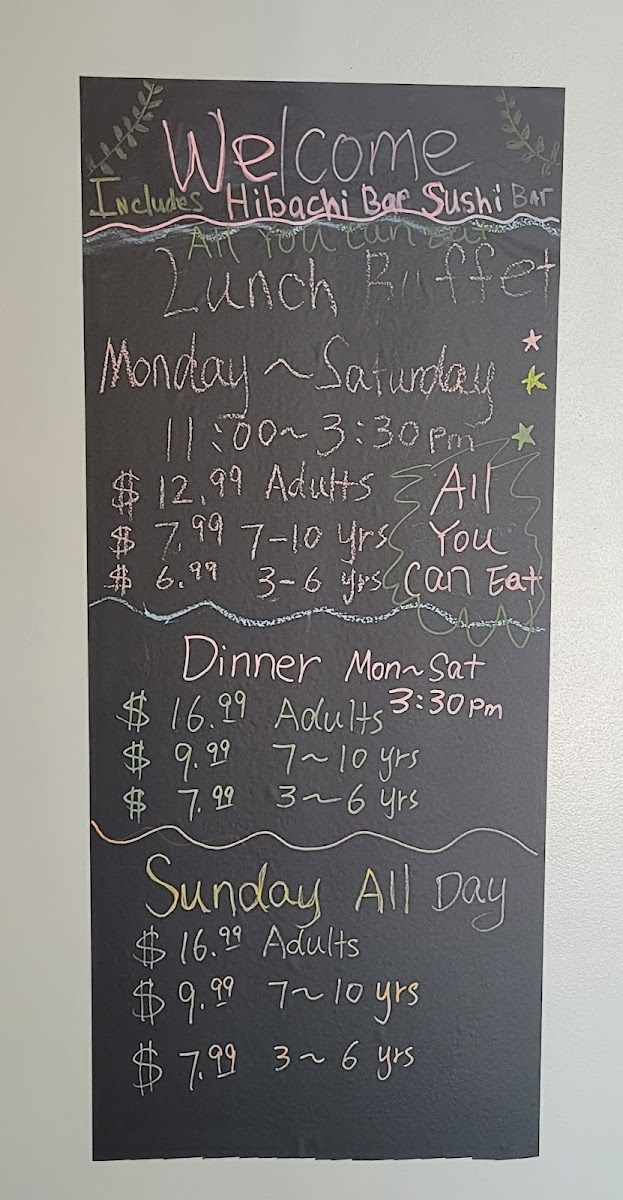 Welcome
Includes Hibachi Bar Sushi Bar
All You Can Eat
Lunch Buffet
Monday ~ Saturday
11:00~3:30pm
$ 12.99 Adults
$ 7.99 7-10 yrs
$ 6.99 3-6 yrs
All
You
Can Eat
Dinner Mon~Sat
3:30pm
$ 16.99 Adults
$ 9.99 7~10 yrs
$ 7.99 3~6 yrs
Sunday All Day
$ 16.99 Adults
$ 9.99 7~10 yrs
$ 7.99 3~6 yrs